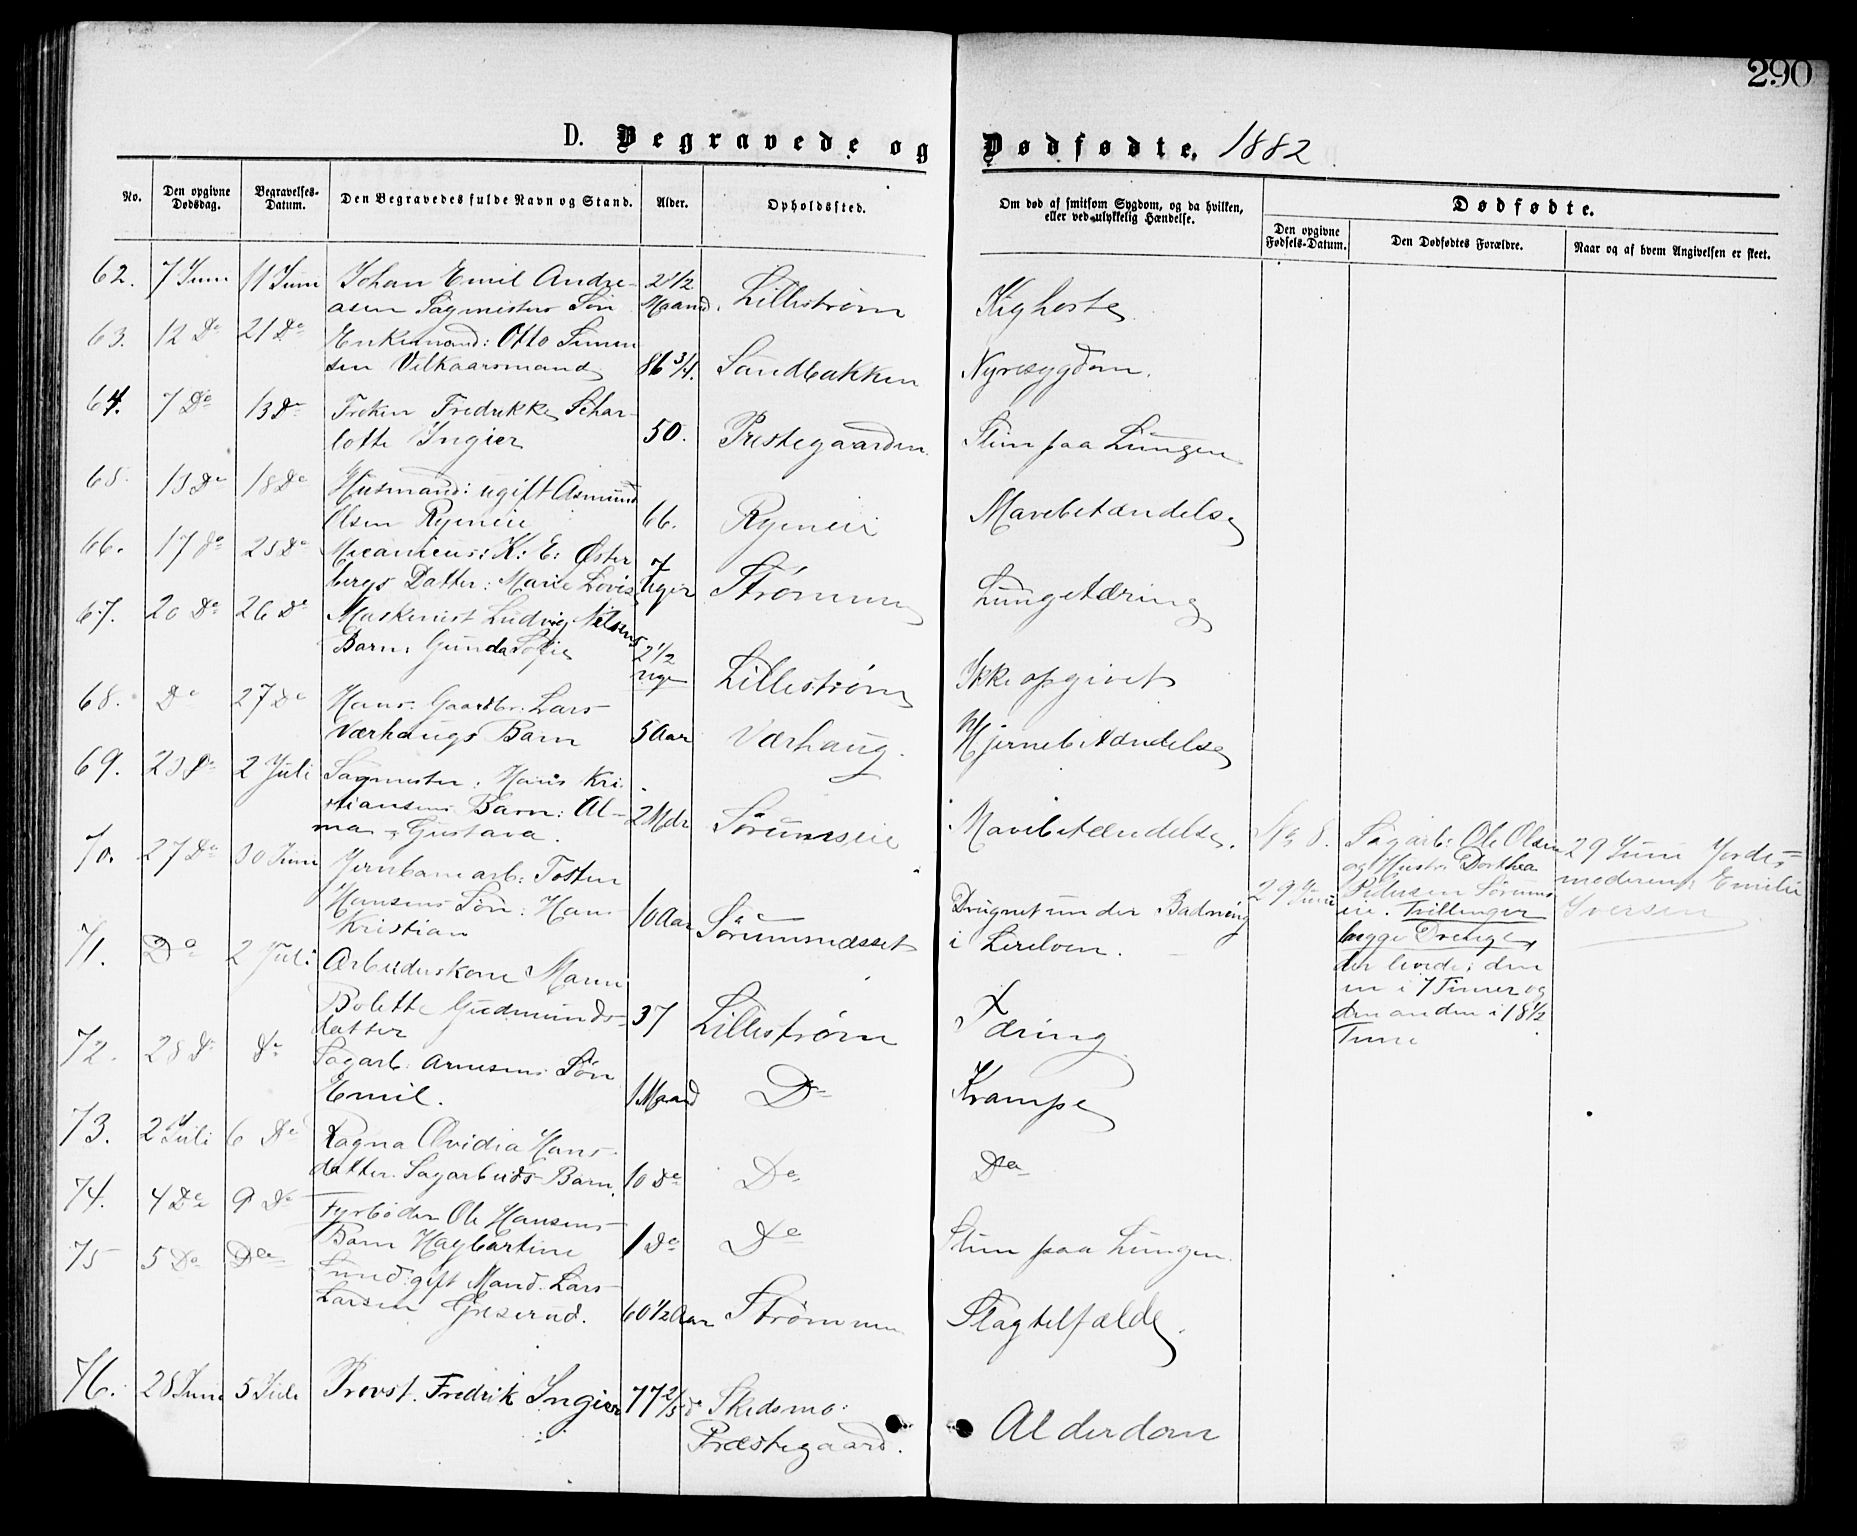 290
D. Begravede og Dødfødte. 1882
No.
Den opgivne Dødsdag.
Begravelses-Datum.
Den Begravedes fulde Navn og Stand.
Alder.
Opholdssted.
Om død af smitsom Sygdom, og da hvilken,
eller ved ulykkelig Hændelse.
Dødfødte.
Den opgivne Fødsels-Datum.
Den Dødfødtes Forældre.
Naar og af hvem Angivelsen er skeet.
62. 7 Juni 11 Juni Johan Emil Andre-
asen Sagmesters Søn 2 1/2 Maaned. Lillestrøm Kighoste
63. 12 Do 21 Do Enkemand: Otto Simen
sen Vilkaarsmand 86 3/4. Sandbakken Nyresygdom.
64. 7 Do 13 Do Frøken Fredrikke Schar-
lotte Ingier 50. Præstegaarden Slim paa Lungen
65. 13 Do 18 Do Husmand: ugift Asmund
Olsen Ryeneie 66. Ryeneie Mavebetændelse
66. 17 Do 25 Do Mecanicus: K: E: Øster
bergs Datter: Marie Lovise 7 Uger Strømmen Lungetæring
67. 20 Do 26 Do Maskinist Ludvig Nilsens
Barn: Gunda Sofie 2 1/2 Uge Lillestrøm Ikke opgivet
68. Do 27 Do Hans: Gaardbr: Lars
Værhaugs Barn 5 Aar Værhaug. Hjernebetændelse
69. 23 Do 2 Juli Sagmester. Hans Kri-
stiansens Barn: Al-
ma Gustava. 2 Mdr Sørumseie Mavebetændelse.
70. 27 Do 30 Juni Jernbanearb: Tosten
Hansens Søn: Hans
Kristian 10 Aar Sørumsnæsset Druknet under Badning
i Lerelven.
71. Do 2 Juli Arbeiderskone Maren
Bolette Gudmunds-
datter 37 Lillestrøm Tæring
72. 28 Do Do Sagarb: Arnesens Søn
Emil. 1 Maaned Do Krampe
73. 2 Juli 6 Do Ragna Ovidia Hans-
datter. Sagarbeids Barn. 10 Do Do Do
74. 4 Do 9 Do Fyrbøder Ole Hansens
Barn Hagbartine 1 Do Do Slim paa Lungen.
75 5 Do Do gift Mand. Lars
Larsen 60 1/2 Aar Strømmen Slagtilfælde.
76. 28 Juni 5 Juli Provst. Fredrik Ingier 77 2/5 do Skedsmo:
Præstegaard. Alderdom
No 8.
29 Juni
Sagarb: Ole Olsen
og Hustru Dorthea
Pedersen Sørums
eie. Tvillinger
begge Drenge,
der levede; den
ene i 7 Timer og
den anden i 18 1/2
Time
29 Juni Jorde-
moderen: Emilie
Iversen